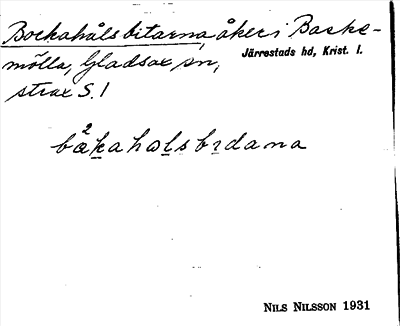 Bockahålsbitarna, åker i Baske-
mölla, Gladsax sn,
Järrestads hd, Krist. l.
strax S. l
b²œkahɷlsbɪdana
NILS NILSSON 1931